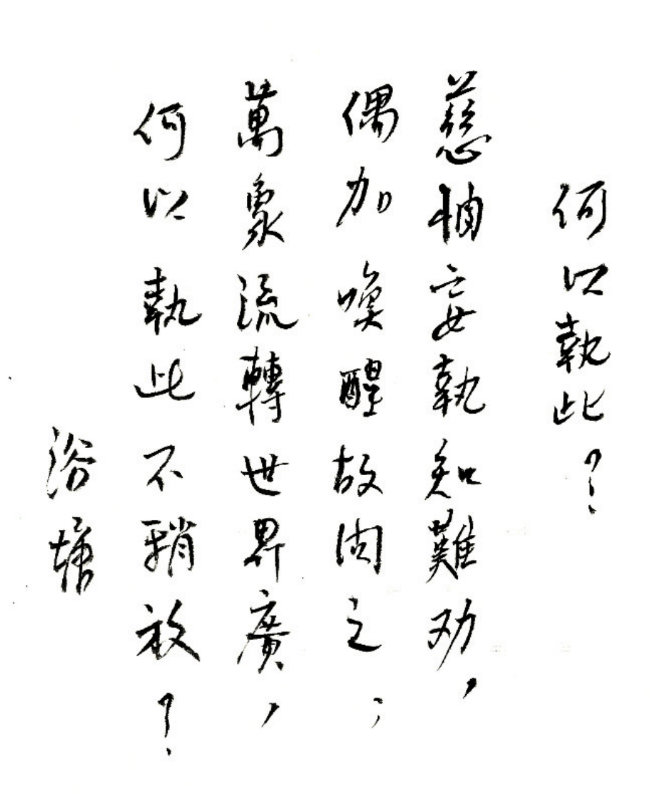 何以執此？
慈悯妄執知難劝，
偶加喚醒故问之；
萬象流轉世界廣，
何以執此不稍放？
浴塘